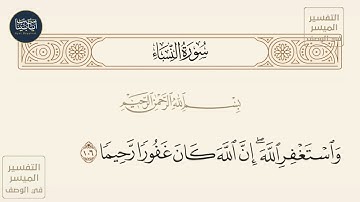 سُورَةُ النِّسَاءِ
التفسير
الميسر
في الوصف
بِسْمِ اللَّهِ الرَّحْمَٰنِ الرَّحِيمِ
وَاسْتَغْفِرِ اللَّهَ ۖ إِنَّ اللَّهَ كَانَ غَفُورًا رَّحِيمًا ١٠٦
التفسير
الميسر
في الوصف